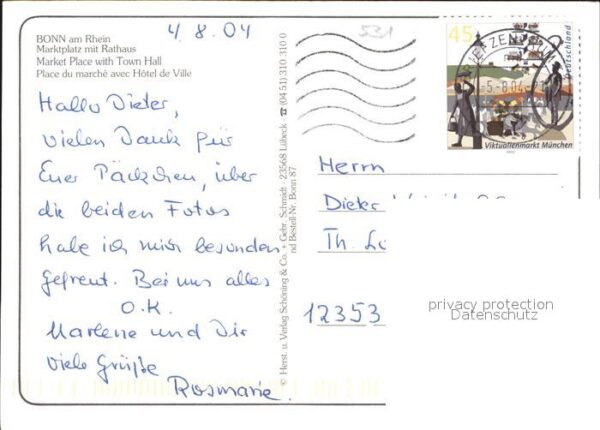 4.8.04
531
BONN am Rhein
Marktplatz mit Rathaus
Market Place with Town Hall
Place du marché avec Hôtel de Ville
Hallo Dieter,
vielen Dank für
Euer Päckchen, über
die beiden Fotos
habe ich mich besonders
gefreut. Bei uns alles
O.K.
Marlene und Dir
viele Grüße
Rosmarie.
© Herst. u. Verlag Schöning & Co. + Gebr. Schmidt · 23568 Lübeck · ☎ (04 51) 310 310 0
nd Bestell-Nr. Bonn 87
45
Deutschland
BRIEFZENTRUM
-5.-8.04
Viktualienmarkt München
Herrn
Dieter
Th.
12353
privacy protection
Datenschutz